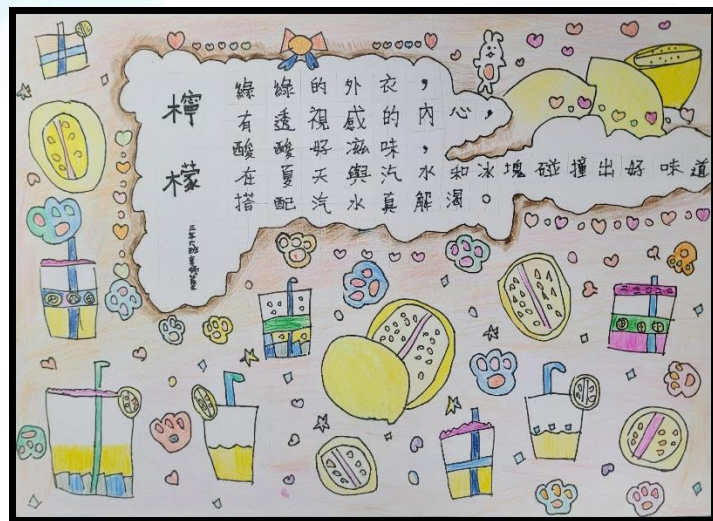 檸檬
綠綠的外衣，
有透視感的內心，
酸酸好滋味，
在夏天與汽水和冰塊碰撞出好味道
搭配汽水真解渴。